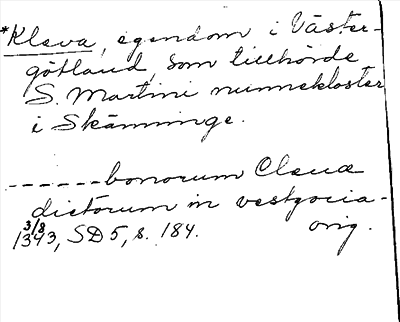 *Kleva, egendom i Väster-
götland, som tillhörde
S. Martini nunnekloster
i Skänninge.
------bonorum Cleua
dictorum in vestgocia-
3/8
1343, SD 5, s. 184. orig.